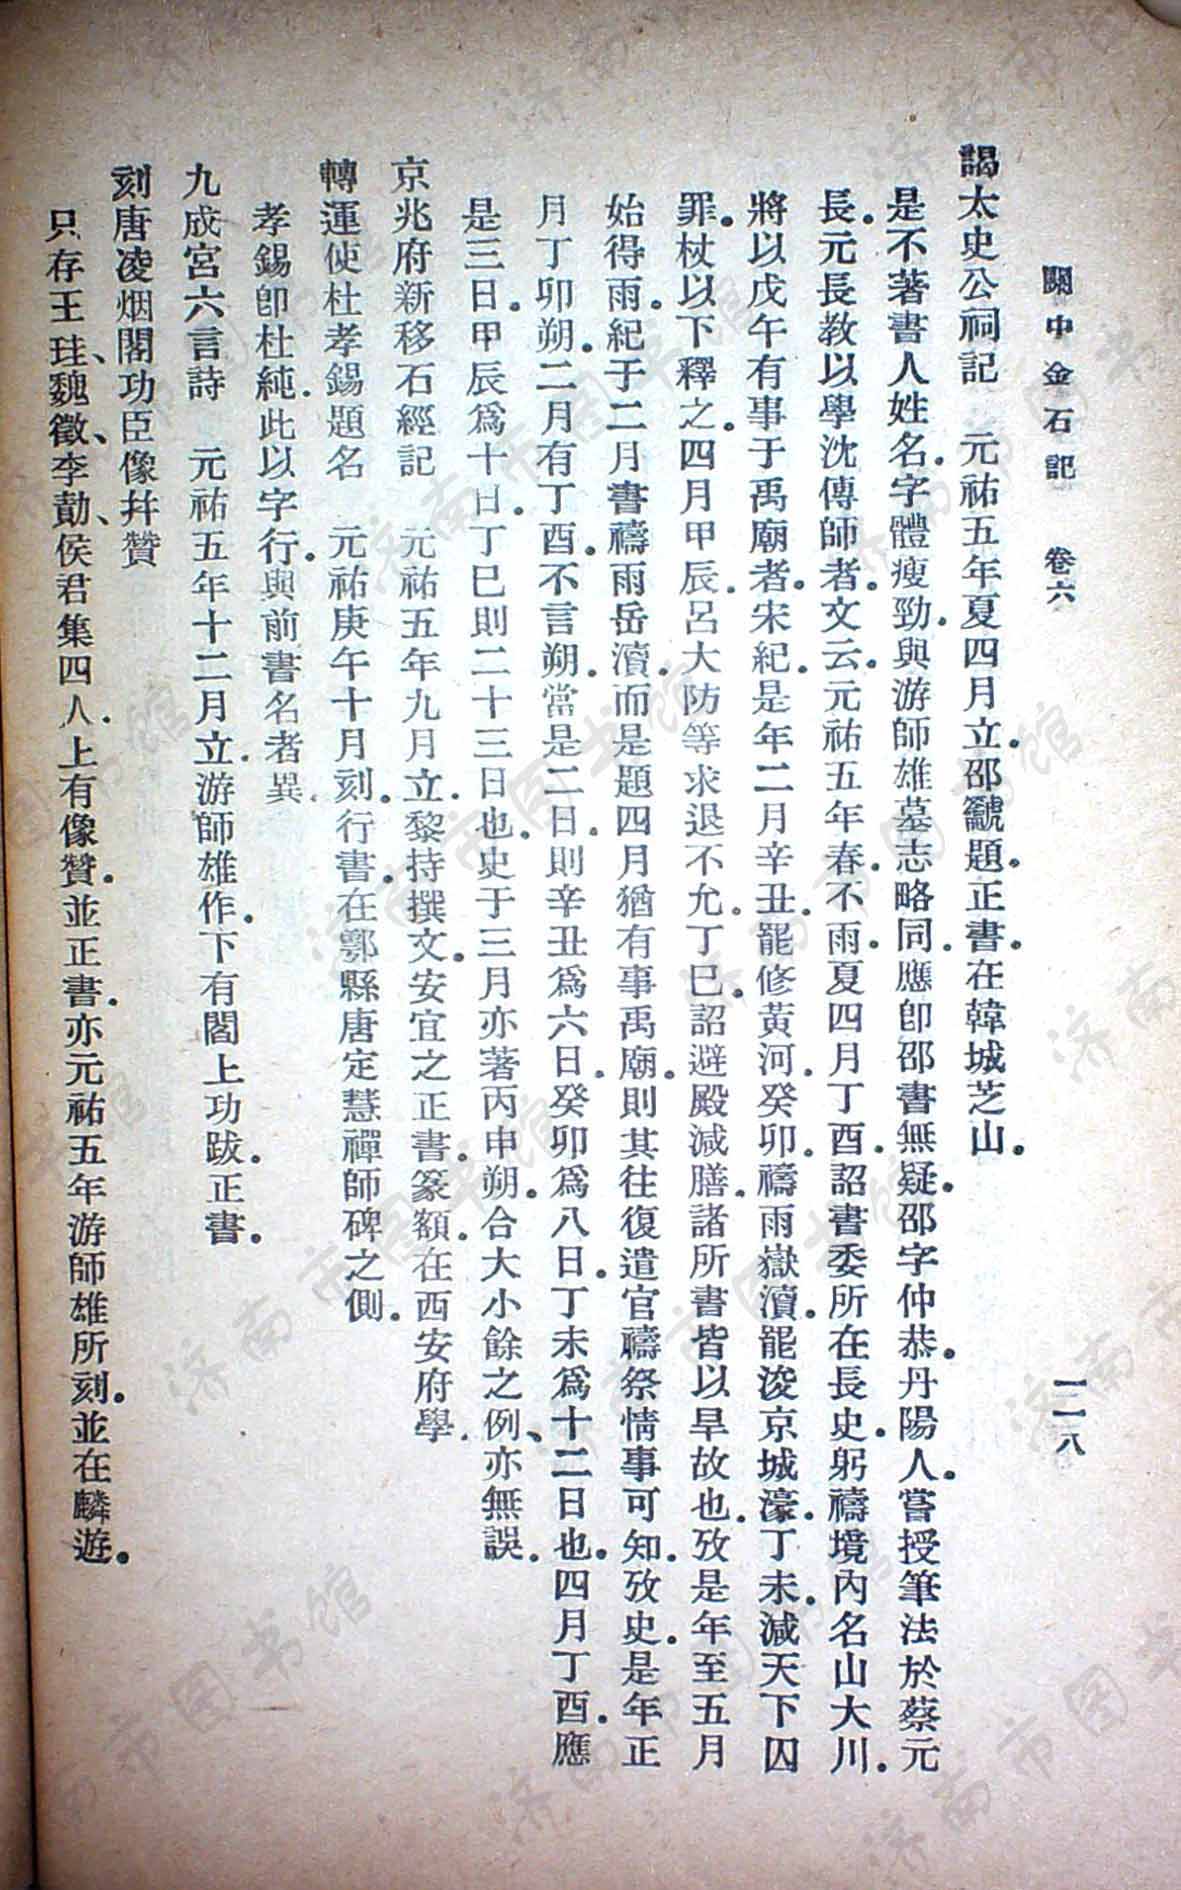 關中金石記 卷六 一二八
謁太史公祠記 元祐五年夏四月立。邵𪛖題。正書。在韓城芝山。
是不著書人姓名。字體瘦勁。與游師雄墓志略同。應卽邵書無疑。邵字仲恭。丹陽人。嘗授筆法於蔡元
長。元長教以學沈傳師者。文云。元祐五年春。不雨。夏四月丁酉。詔書委所在長史。躬禱境內名山大川。
將以戊午有事于禹廟者。宋紀。是年二月辛丑。罷修黃河。癸卯。禱雨嶽瀆。罷浚京城濠。丁未。減天下囚
罪。杖以下釋之。四月甲辰。呂大防等求退不允。丁巳。詔避殿減膳。諸所書皆以旱故也。攷是年至五月
始得雨。紀于二月書禱雨岳瀆。而是題四月猶有事禹廟。則其往復遣官禱祭情事可知。攷史。是年正
月丁卯朔。二月有丁酉。不言朔。當是二日。則辛丑爲六日。癸卯爲八日。丁未爲十二日也。四月丁酉。應
是三日。甲辰爲十日。丁巳則二十三日也。史于三月亦著丙申朔。合大小餘之例、亦無誤。
京兆府新移石經記 元祐五年九月立。黎持撰文。安宜之正書。篆額。在西安府學。
轉運使杜孝錫題名 元祐庚午十月刻。行書。在鄠縣唐定慧禪師碑之側。
孝錫卽杜純。此以字行。與前書名者異。
九成宮六言詩 元祐五年十二月立。游師雄作。下有閻上功跋。正書。
刻唐凌烟閣功臣像幷贊
只存王珪、魏徵、李勣、侯君集四人。上有像贊。並正書。亦元祐五年游師雄所刻。並在麟遊。